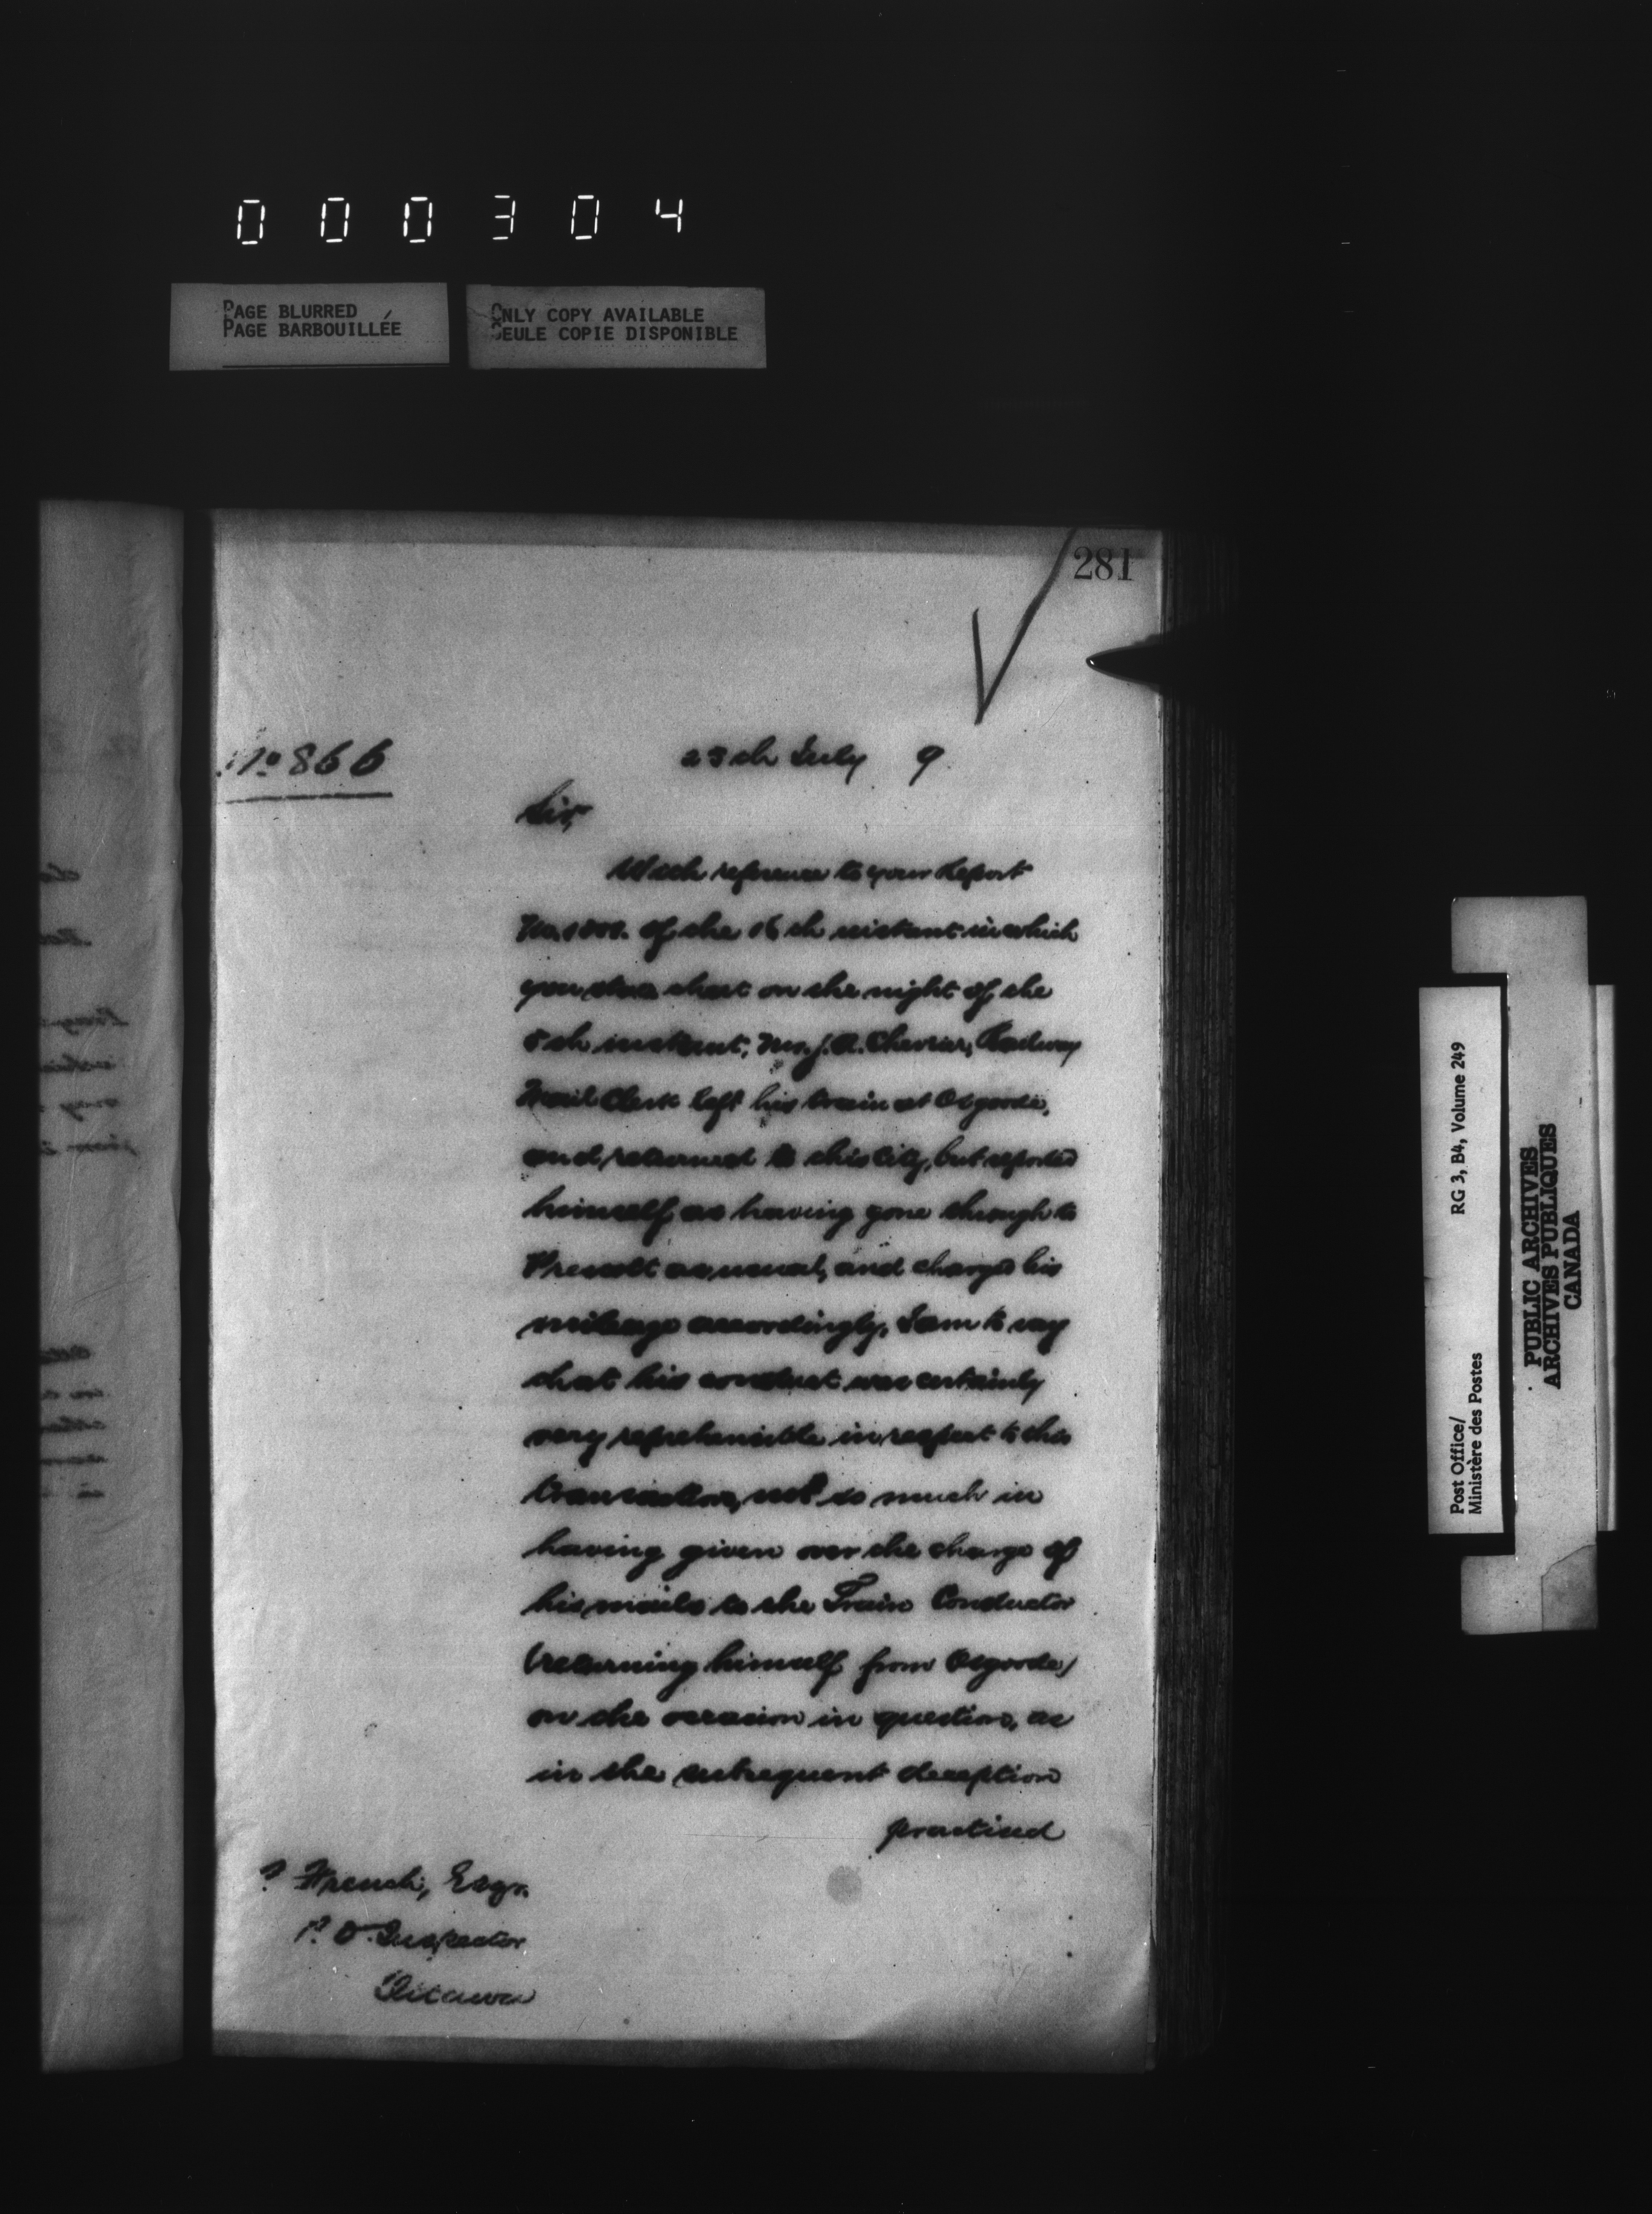 000304
PAGE BLURRED
PAGE BARBOUILLÉE
ONLY COPY AVAILABLE
SEULE COPIE DISPONIBLE
281
No 866
23th July 9.
Sir,
With reference to your Report
No. of the 16th instant in which
you that on the night of the
5th instant, Mr. J. A. Chevrier, Railway
Mail Clerk left his train at Osgoode,
and returned to this City, but reported
himself as having gone through to
Prescott as usual, and charged his
mileage accordingly, I am to say
that his conduct was certainly
very reprehensible in respect to this
transaction, not so much in
having given over the charge of
his mails to the Train Conductor
(returning himself from Osgoode)
on the occasion in question, as
in the subsequent deception
practised
French, Esqr.
P. O. Inspector
Ottawa
Post Office/
Ministère des Postes
RG 3, B4, Volume 249
PUBLIC ARCHIVES
ARCHIVES PUBLIQUES
CANADA